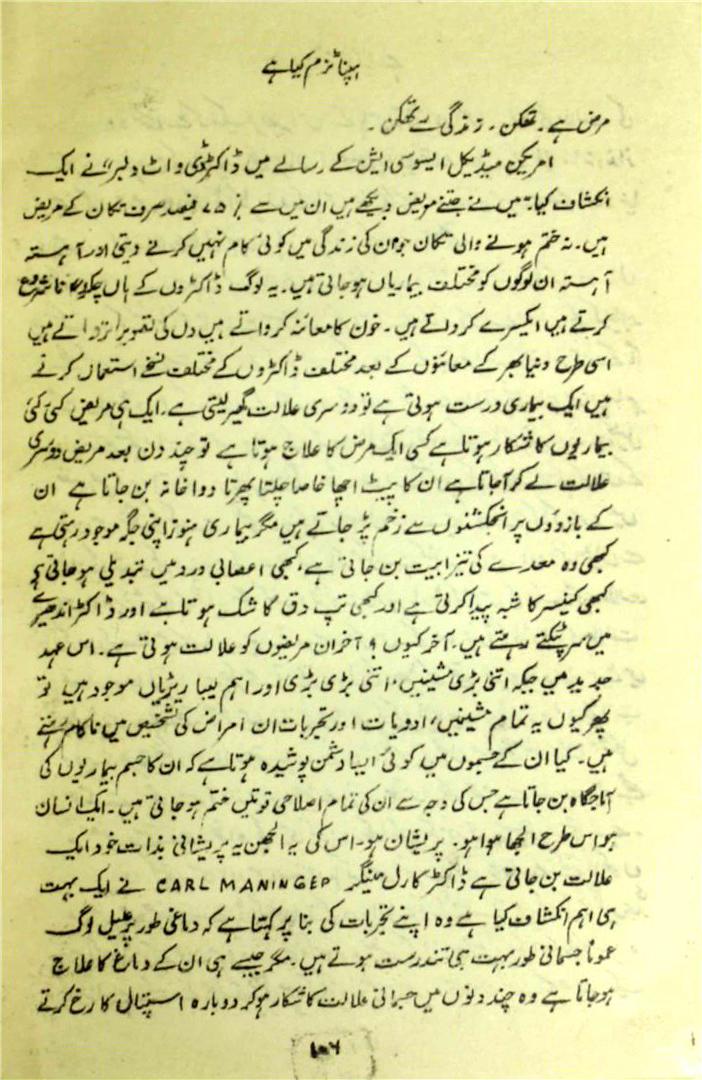 ہپناٹزم کیا ہے
مرض ہے۔ تھکن۔ زندگی سے تھکن۔
امریکن میڈیکل ایسوسی ایشن کے رسالے میں ڈاکٹر نے ایک
انکشاف کیا۔ "میں نے جتنے مریض دیکھے ہیں ان میں سے ۷۵ فیصد صرف تکان کے مریض
ہیں۔ نہ ختم ہونے والی تکان جو ان کی زندگی میں کوئی کام نہیں کرنے دیتی اور آہستہ
آہستہ ان لوگوں کو مختلف بیماریاں ہو جاتی ہیں۔ یہ لوگ ڈاکٹروں کے ہاں چکر لگانا شروع
کرتے ہیں ایکسرے کرواتے ہیں۔ خون کا معائنہ کرواتے ہیں دل کی تصویر اترواتے ہیں
اسی طرح دنیا بھر کے معائنوں کے بعد مختلف ڈاکٹروں کے مختلف نسخے استعمال کرتے
ہیں ایک بیماری درست ہوتی ہے تو دوسری علالت گھیر لیتی ہے۔ ایک ہی مریض کئی کئی
بیماریوں کا شکار ہوتا ہے کسی ایک مرض کا علاج ہوتا ہے تو چند دن بعد مریض دوسری
علالت لے کر آجاتا ہے ان کا پیٹ اچھا خاصا چلتا پھرتا دواخانہ بن جاتا ہے ان
کے بازوؤں پر انجکشنوں سے زخم پڑ جاتے ہیں مگر بیماری ہنوز اپنی جگہ موجود رہتی ہے
کبھی وہ معدے کی تیزابیت بن جاتی ہے، کبھی اعصابی درد میں تبدیلی ہو جاتی ہے
کبھی کینسر کا شبہ پیدا کرتی ہے اور کبھی تپ دق کا شک ہوتا ہے اور ڈاکٹر اندھیرے
میں سر پٹکتے رہتے ہیں۔ آخر کیوں؟ آخر ان مریضوں کو علالت ہوتی ہے۔ اس عہد
جدید میں جبکہ اتنی بڑی مشینیں، اتنی بڑی بڑی اور اہم لیباریٹریاں موجود ہیں تو
پھر کیوں یہ تمام مشینیں، ادویات اور تجربات ان امراض کی تشخیص میں ناکام رہتے
ہیں۔ کیا ان کے جسموں میں کوئی ایسا دشمن پوشیدہ ہوتا ہے کہ ان کا جسم بیماریوں کی
آماجگاہ بن جاتا ہے جس کی وجہ سے ان کی تمام اصلاحی قوتیں ختم ہو جاتی ہیں۔ ایک انسان
ہو اس طرح الجھا ہوا ہو۔ پریشان ہو۔ اس کی یہ الجھن یہ پریشانی بذات خود ایک
علالت بن جاتی ہے ڈاکٹر کارل مینگر CARL MANINGEP نے ایک بہت
ہی اہم انکشاف کیا ہے وہ اپنے تجربات کی بنا پر کہتا ہے کہ دماغی طور پر علیل لوگ
عموماً جسمانی طور بہت ہی تندرست ہوتے ہیں۔ مگر جیسے ہی ان کے دماغ کا علاج
ہو جاتا ہے وہ چند دنوں میں جسمانی علالت کا شکار ہو کر دوبارہ اسپتال کا رخ کرتے
۱۰۶